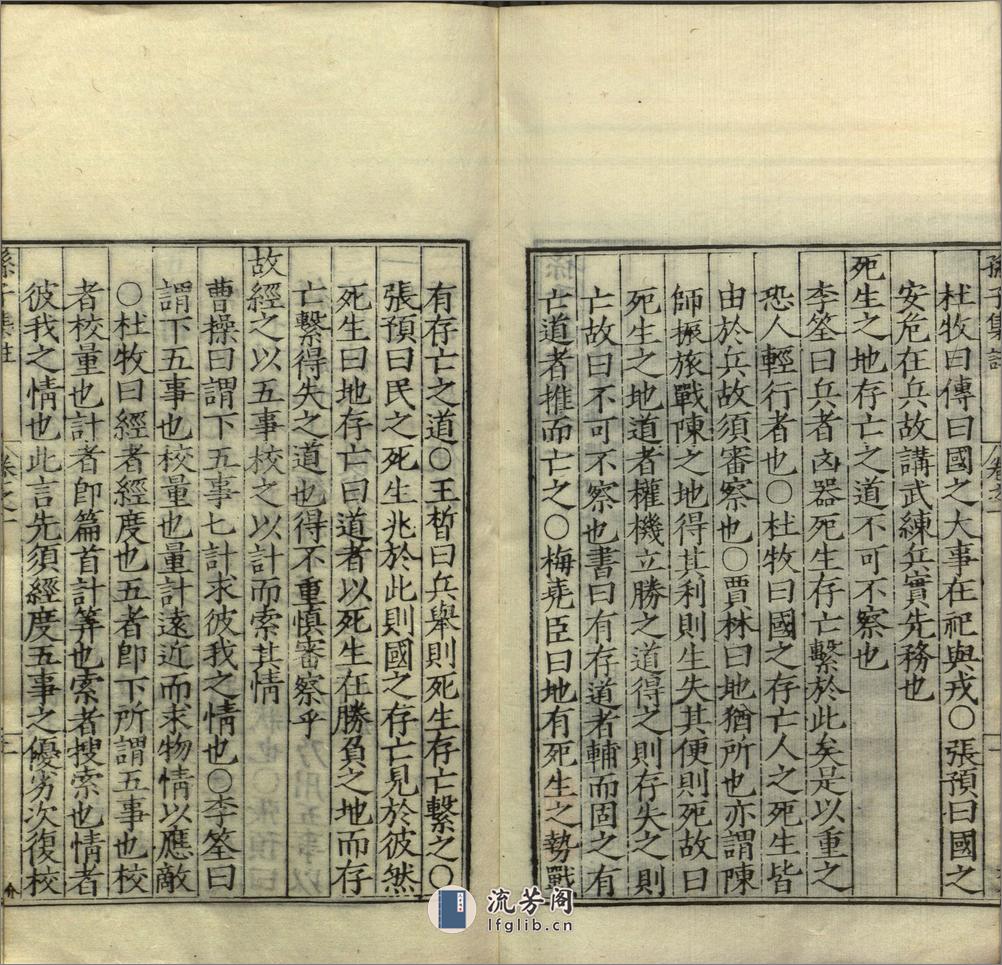 孫子集註
卷之一
杜牧曰傳曰國之大事在祀與戎○張預曰國之
安危在兵故講武練兵實先務也
死生之地存亡之道不可不察也
李筌曰兵者凶器死生存亡繫於此矣是以重之
恐人輕行者也○杜牧曰國之存亡人之死生皆
由於兵故須審察也○賈林曰地猶所也亦謂陳
師振旅戰陳之地得其利則生失其便則死故曰
死生之地道者權機立勝之道得之則存失之則
亡故曰不可不察也書曰有存道者輔而固之有
亡道者推而亡之○梅堯臣曰地有死生之勢戰
有存亡之道○王晳曰兵舉則死生存亡繫之○
張預曰民之死生兆於此則國之存亡見於彼然
死生曰地存亡曰道者以死生在勝負之地而存
亡繫得失之道也得不重慎審察乎
故經之以五事校之以計而索其情
曹操曰謂下五事七計求彼我之情也○李筌曰
謂下五事也校量也量計遠近而求物情以應敵
○杜牧曰經者經度也五者卽下所謂五事也校
者校量也計者卽篇首計筭也索者搜索也情者
彼我之情也此言先須經度五事之優劣次復校
孫子集註
卷之一
流芳阁
lfglib.cn